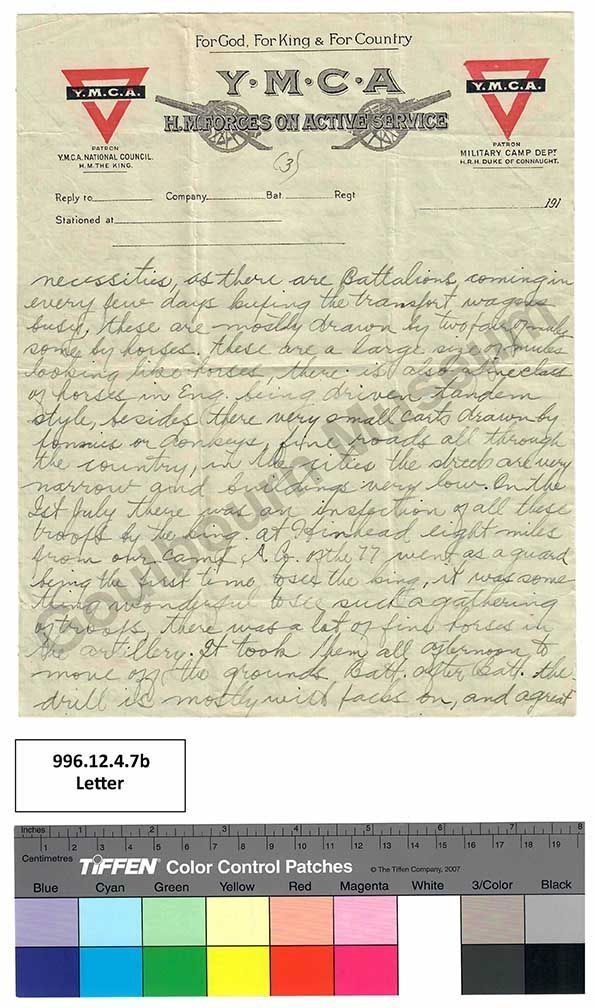 For God, For King & For Country
Y·M·C·A
H.M. FORCES ON ACTIVE SERVICE
Y.M.C.A.
PATRON
Y.M.C.A. NATIONAL COUNCIL.
H.M. THE KING.
Y.M.C.A.
PATRON
MILITARY CAMP DEPT
H.R.H. DUKE OF CONNAUGHT.
(3)
Reply to Company Bat. Regt
Stationed at
191
necessities, as there are Battalions, coming in
every few days keeping the transport wagons
busy, these are mostly drawn by two pair of mules
some by horses. these are a large size of mules
looking like horses, there is also a fine class
of horses in Eng. being driven tandem
style, besides there very small carts drawn by
ponnies or donkeys, fine roads all through
the country, in the cities the streets are very
narrow and buildings very low. On the
1st July there was an inspection of all these
troops by the king. at Hinhead eight miles
from our camp, A. Co. of the 77 went as a guard
being the first time to see the king, it was some
thing wonderful to see such a gathering
of troops there was a lot of fine horses in
the artillery. It took them all afternoon to
move off the grounds Batt. after Batt. the
drill is mostly with packs on, and a great
Goulbourn Museum
996.12.4.7b
Letter
Inches 1 2 3 4 5 6 7 8
Centimetres 1 2 3 4 5 6 7 8 9 10 11 12 13 14 15 16 17 18 19
TIFFEN Color Control Patches © The Tiffen Company, 2007
Blue Cyan Green Yellow Red Magenta White 3/Color Black